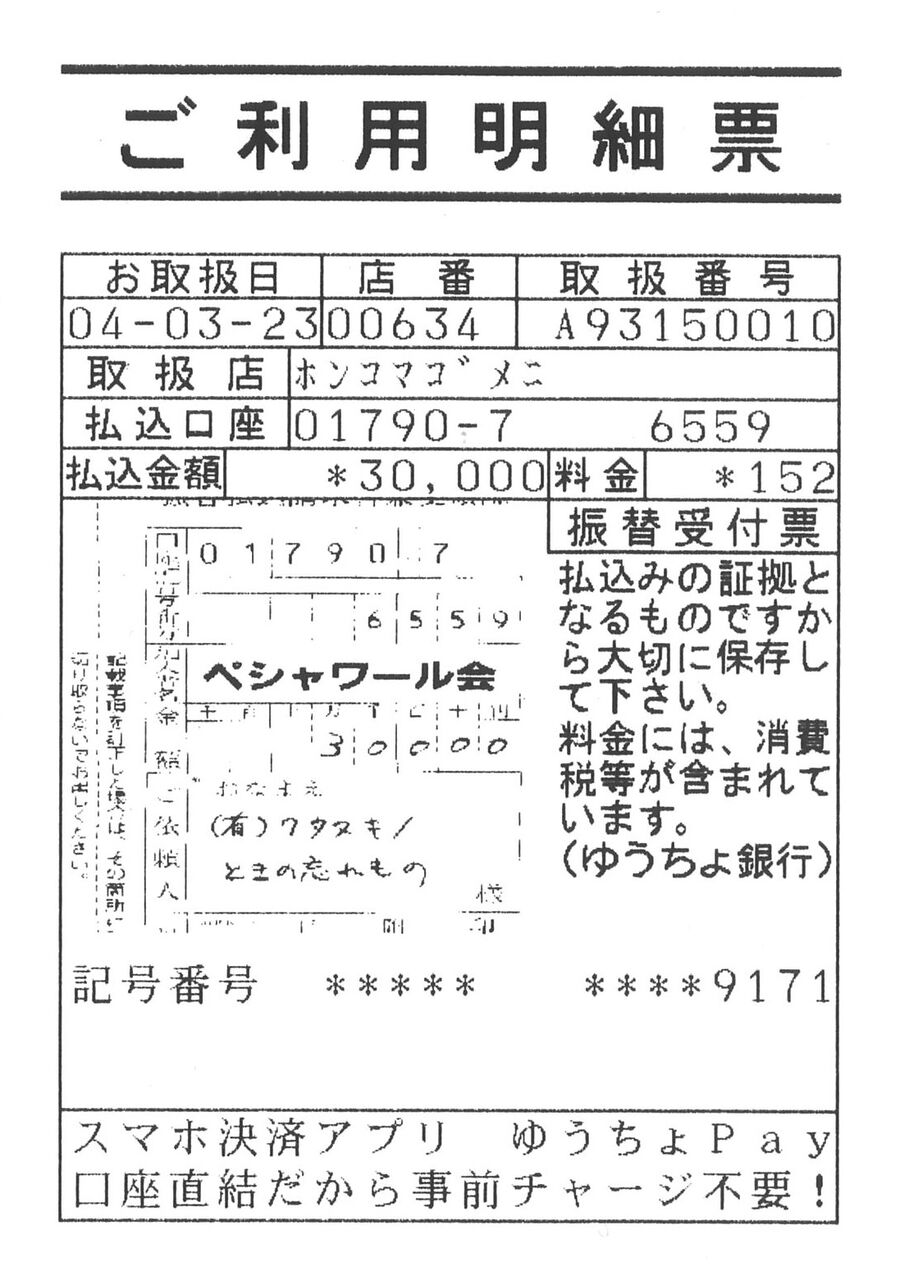 ご利用明細票
お取扱日 店番 取扱番号
04-03-23 00634 A93150010
取扱店 ホンコマゴメニ
払込口座 01790-7 6559
払込金額 *30,000 料金 *152
振替受付票
払込みの証拠と
なるものですか
ら大切に保存し
て下さい。
料金には、消費
税等が含まれて
います。
(ゆうちょ銀行)
01790 7
6559
ペシャワール会
金額
30000
おなまえ
ご依頼人
(有)ワタヌキ/
ときの忘れもの
様
記載事項を訂正した場合は、その箇所に
切り取らないでお出しください。
記号番号 ***** ****9171
スマホ決済アプリ ゆうちょPay
口座直結だから事前チャージ不要!